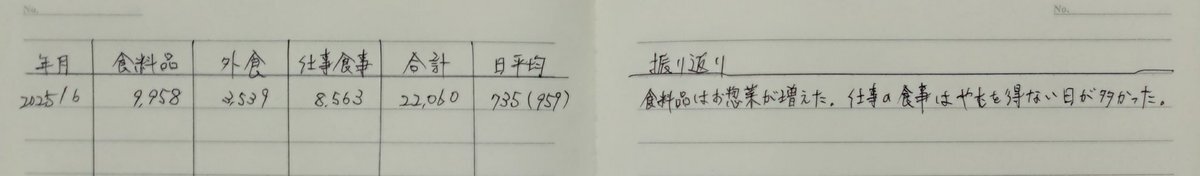 No.
No.
年月 食料品 外食 仕事食事 合計 日平均
振り返り
2025/6 9,958 3,539 8,563 22,060 735(959)
食料品はお惣菜が増えた。仕事の食事はやむを得ない日が多かった。